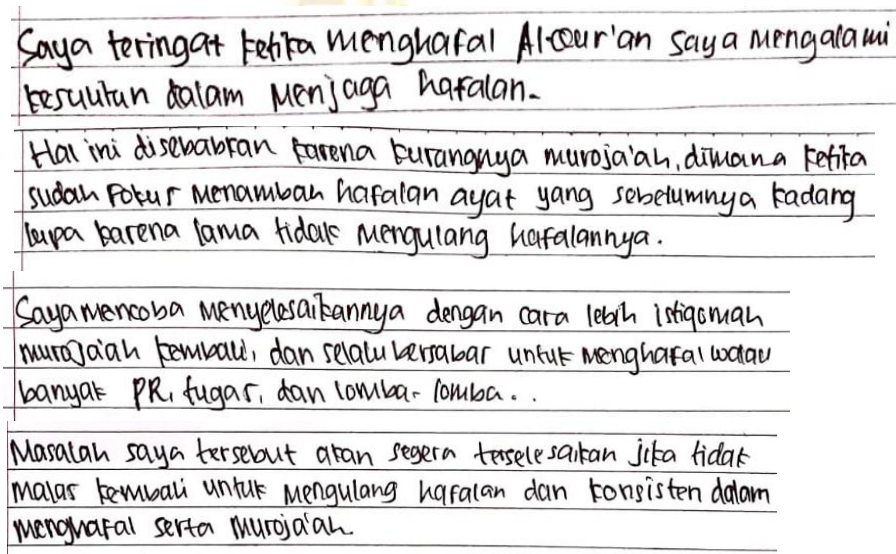 Saya teringat ketika menghafal Al-Qur'an saya mengalami
kesulitan dalam menjaga hafalan.
Hal ini disebabkan karena kurangnya muroja'ah, dimana ketika
sudah fokus menambah hafalan ayat yang sebelumnya kadang
lupa karena lama tidak mengulang hafalannya.
Saya mencoba menyelesaikannya dengan cara lebih istiqomah
muroja'ah kembali, dan selalu bersabar untuk menghafal walau
banyak PR, tugas, dan lomba-lomba..
Masalah saya tersebut akan segera terselesaikan jika tidak
malas kembali untuk mengulang hafalan dan konsisten dalam
menghafal serta muroja'ah.